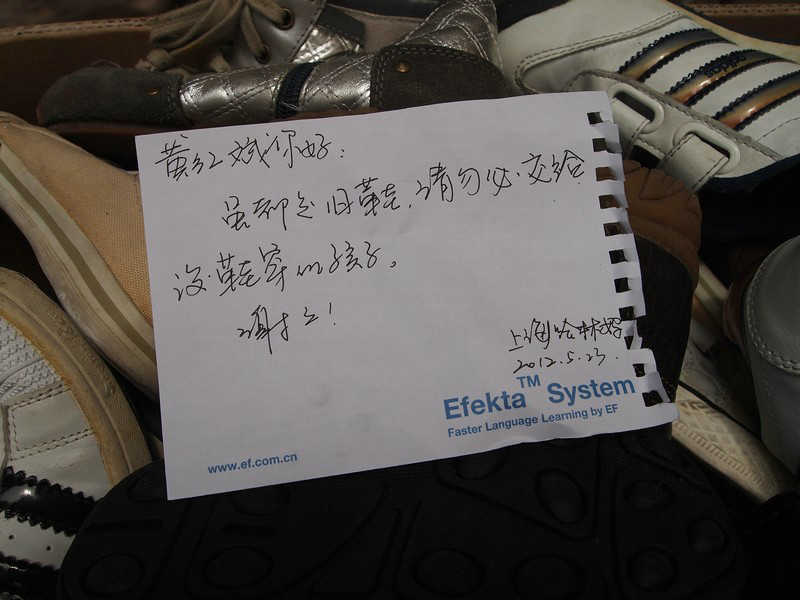 黄红斌你好:
虽都是旧鞋,请务必交给
没鞋穿的孩子。
谢谢!
上海哈林
2012.5.23.
Efekta™ System
Faster Language Learning by EF
www.ef.com.cn
adidas